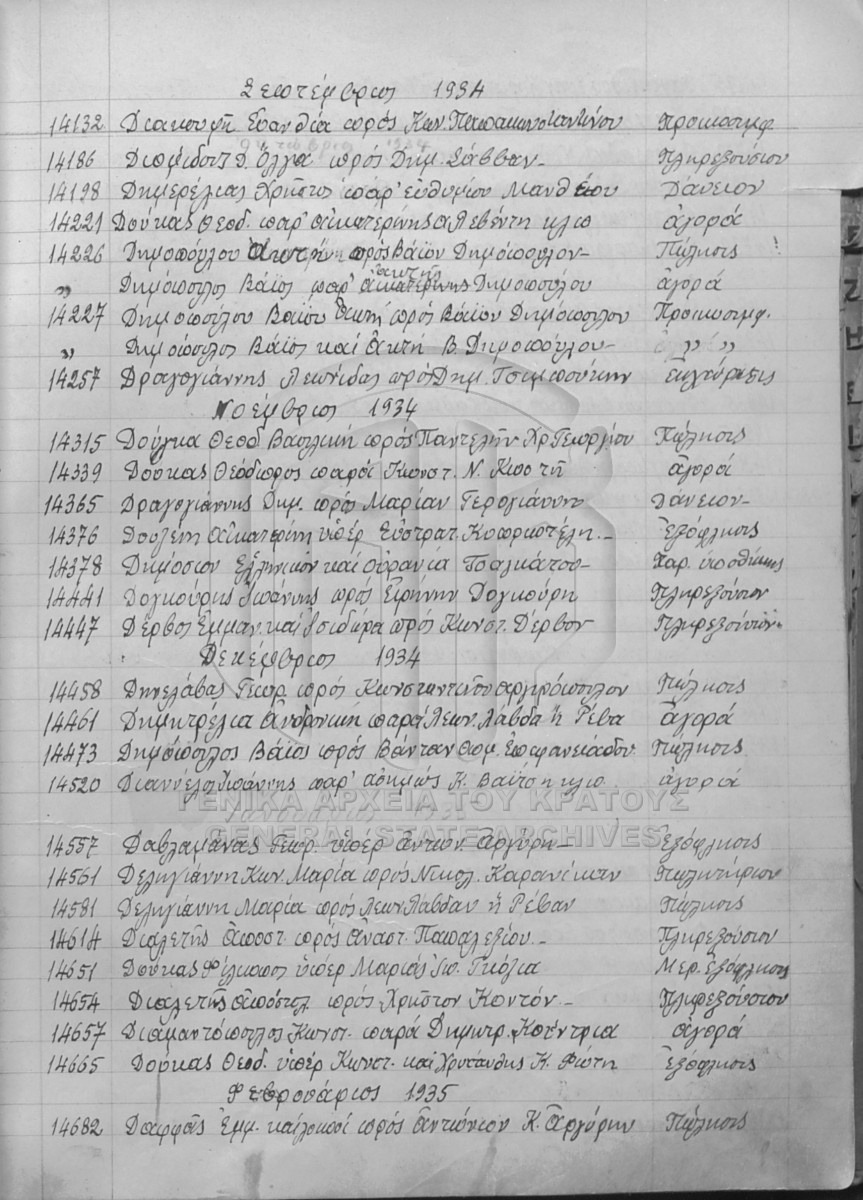 Σεπτέμβριος 1934
14132 Διακουμῆ Εὐανθία πρός Κων. Παπακωνσταντίνου Προικοσυμφ.
14186 Διαμίδου Δ. Ὄλγα πρός Δημ. Σάββαν- Πληρεξούσιον
14198 Δημερέλιας Χρῆστος παρ' εὐθυμίου Μανθαίου Δάνειον
14221 Δούκας Θεοδ. παρ' αἰκατερίνης Λεβέντη κλπ ἀγορά
14226 Δημοπούλου πρός Βάϊον Δημόπουλον- Πώλησις
„ Δημόπουλος Βάϊος παρ' αἰκατερίνης Δημοπούλου ἀγορά
14227 Δημοπούλου Βαΐου πρός Βάϊον Δημόπουλον Προικοσυμφ.
„ Δημόπουλος Βάϊος καί Β. Δημοπούλου- „ „
14257 Δραγογιάννης Λεωνίδας πρός Δημ. Τσιμπούκην
Νοέμβριος 1934
14315 Δούγκα Θεοδ. Βασιλική πρός Παντελῆν Χρ. Γεωργίου Πώλησις
14339 Δούκας Θεόδωρος παρά Κωνστ. Ν. Κωστῆ ἀγορά
14365 Δραγογιάννης Δημ. πρός Μαρίαν Γερογιάννη Δάνειον-
14376 Δουζένη Αἰκατερίνη ὑπέρ Εὐστρατ. Ἐξόφλησις
14378 Δημόσιον Ἑλληνικόν καί οὐρανία Τσαλμάτου- Χαρ. ὑποθήκης
14441 Δογκούρης Ἰωάννης πρός Εἰρήνην Δογκούρη Πληρεξούσιον
14447 Δέρβος Ἐμμαν. καί Ἰσιδώρα πρός Κωνστ. Δέρβον Πληρεξούσιον.
Δεκέμβριος 1934
14458 Δηνελάβας Γεωρ. πρός Κωνσταντῖνον Αργυρόπουλον Πώλησις
14461 Δημητρέλια Ἀνδρονίκη παρά Λεων. Λάβδα ἤ Ρέβα ἀγορά
14473 Δημόπουλος Βάϊος πρός Βάντσαν Θωμ. Ἐπιφανειάδου Πώλησις
14520 Διαννέλος Ἰωάννης παρ' ἀσημώς Κ. Βαΐτση κλπ ἀγορά
14557 Δαβλαμάνας Γεωρ. ὑπέρ Ἀντων. Ἀργύρη- Ἐξόφλησις
14561 Δεληγιάννη Κων. Μαρία πρός Νικολ. Καρανίκαν Πωλητήριον
14581 Δεληγιάννη Μαρία πρός Λεων. Λάβδαν ἤ Ρέβαν Πώλησις
14614 Διαλετῆς Ἀποστ. πρός Ἀναστ. Παπαλεξίου.- Πληρεξούσιον
14651 Δούκας Φίλιππος ὑπέρ Μαρίας Ἰω. Γκόλια Μερ. Ἐξόφλησις
14654 Διαλετῆς Ἀπόστολ. πρός Χρῆστον Κοντόν- Πληρεξούσιον
14657 Διαμαντόπουλος Κωνστ. παρά Δημητρ. Κατέντρια ἀγορά
14665 Δούκας Θεοδ. ὑπέρ Κωνστ. καί Χρυσάνθης Κ. Φώτη Ἐξόφλησις
Φεβρουάριος 1935
14682 Δαφφᾶς Ἐμμ. καί λοιποί πρός Ἀντώνιον Κ. Ἀργύρην Πώλησις
ΓΕΝΙΚΑ ΑΡΧΕΙΑ ΤΟΥ ΚΡΑΤΟΥΣ
GENERAL STATE ARCHIVES